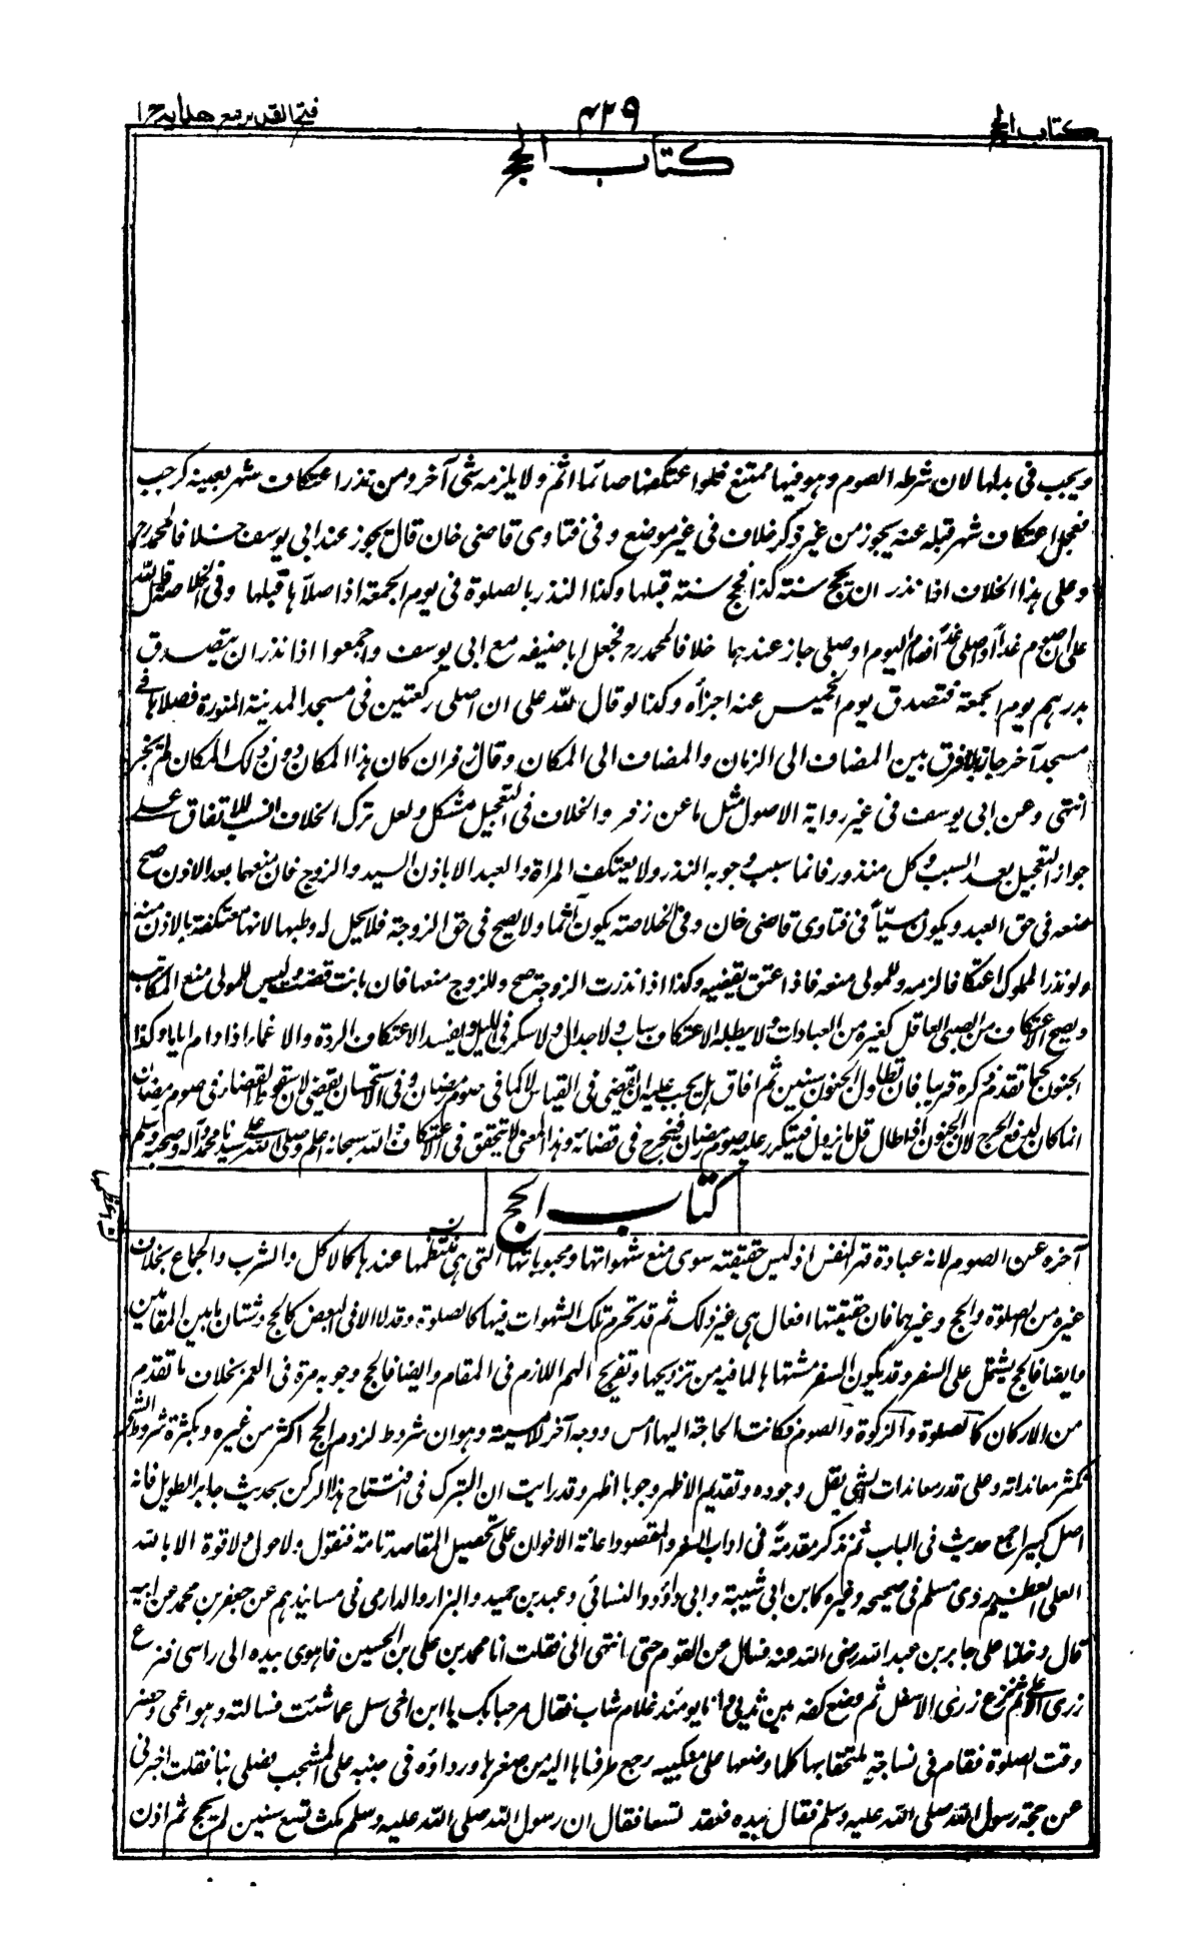 كتاب الحج
٤٢٩
فتح القدير مع هدايه ج ١
كتاب الحج
ويجب فى بدلها لان شرطه الصوم وهو فيها ممتنع فلو اعتكفها صائما اثم ولا يلزمه شئ آخر ومن نذر اعتكاف شهر بعينه كرجب
فعجل اعتكاف شهر قبله عنه يجوز من غير ذكر خلاف فى غير موضع وفى فتاوى قاضى خان قال يجوز عند ابى يوسف خلافا لمحمد رح
وعلى هذا الخلاف اذا نذر ان يحج سنة كذا فحج سنة قبلها وكذا النذر بالصلوة فى يوم الجمعة اذا صلاها قبلها وفى الخلاصة قال لله
على ان اصوم غدا او اصلى غدا فصام اليوم او صلى جاز عندهما خلافا لمحمد رح فجعل ابا حنيفه مع ابى يوسف واجمعوا اذا نذر ان يتصدق
بدرهم يوم الجمعة فتصدق يوم الخميس عنه اجزأه وكذا لو قال لله على ان اصلى ركعتين فى مسجد المدينة المنورة فصلاها فى
مسجد آخر جاز بلا فرق بين المضاف الى الزمان والمضاف الى المكان وقال زفر ان كان هذا المكان دون ذلك المكان لم يجز
انتهى وعن ابى يوسف فى غير رواية الاصول مثل ما عن زفر والخلاف فى التعجيل مشكل ولعل ترك الخلاف انسب للاتفاق على
جواز التعجيل بعد السبب وكل منذور فانما سبب وجوبه النذر ولا يعتكف المراة والعبد الا باذن السيد والزوج فان منعهما بعد الاذن صح
منعه فى حق العبد ويكون مسيّاً فى فتاوى قاضى خان وفى الخلاصة يكون آثما ولا يصح فى حق الزوجة فلا يحل له وطيها لانها معتكفة بالاذن منه
ولو نذر المملوك اعتكافا لزمه وللمولى منعه فاذا عتق يقضيه وكذا اذا نذرت الزوجة صح وللزوج منعها فان بانت قضت وليس للمولى منع المكاتب
ويصح الاعتكاف من الصبى العاقل كغيره من العبادات ولا يبطله الاعتكاف سباب ولا جدال ولا سكر فى الليل ويفسد الاعتكاف الردة والاغماء اذا دام اياما وكذا
الجنون كما تقدم ذكره قريبا فان تطاول الجنون سنين ثم افاق هل يجب عليه ان يقضى فى القياس لا كما فى صوم رمضان وفى الاستحسان يقضى لان سقوط القضاء فى صوم رمضان
انما كان لدفع الحرج لان الجنون اذا طال قل ما يزول فيتكرر عليه صوم رمضان فيحرج فى قضائه وهذا المعنى لا يتحقق فى الاعتكاف والله سبحانه اعلم وصلى الله على سيدنا محمد وآله وصحبه وسلم
كتاب الحج
آخره عن الصوم لانه عبادة قهر النفس اذ ليس حقيقته سوى منع شهواتها ومحبوباتها التى هى عندها كالاكل والشرب والجماع بخلاف
غيره من الصلوة والحج وغيرهما فان حقيقتها افعال هى غير ذلك ثم قد تحرم تلك الشهوات فيها كالصلوة وقد لا الا فى البعض كالحج وشتان ما بين المقامين
وايضا فالحج يشتمل على السفر وقد يكون السفر مشتهاها لما فيه من ترويحها وتفريج الهم اللازم فى المقام وايضا فالحج وجوبه مرة فى العمر بخلاف ما تقدم
من الاركان كالصلوة والزكوة والصوم فكانت الحاجة اليها امس ووجه آخر وهو ان شروط لزوم الحج اكثر من غيره وبكثرة شروط الشئ
تكثر معانداته وعلى قدر معاندات الشئ يقل وجوده وتقديم الاظهر وجوبا اظهر وقد رايت ان اتبرك فى افتتاح هذا الركن بحديث جابر الطويل فانه
اصل كبير اجمع حديث فى الباب ثم نذكر مقدمة فى اداب السفر والمقصود اعانة الاخوان على تحصيل المقاصد تامة فنقول ولا حول ولا قوة الا بالله
العلى العظيم روى مسلم فى صحيحه وغيره كابن ابى شيبة وابى داؤد والنسائى وعبد بن حميد والبزار والدارمى فى مسانيدهم عن جعفر بن محمد عن ابيه
قال دخلنا على جابر بن عبد الله رضى الله عنه فسال عن القوم حتى انتهى الى فقلت انا محمد بن على بن الحسين فاهوى بيده الى راسى فنزع
زرى الاعلى ثم نزع زرى الاسفل ثم وضع كفه بين ثديى وانا يومئذ غلام شاب فقال مرحبا بك يا ابن اخى سل عما شئت فسالته وهو اعمى وحضر
وقت الصلوة فقام فى نساجة ملتحفا بها كلما وضعها على منكبيه رجع طرفاها اليه من صغرها ورداؤه فى جنبه على المشجب فصلى بنا فقلت اخبرنى
عن حجة رسول الله صلى الله عليه وسلم فقال بيده فعقد تسعا فقال ان رسول الله صلى الله عليه وسلم مكث تسع سنين لم يحج ثم اذن